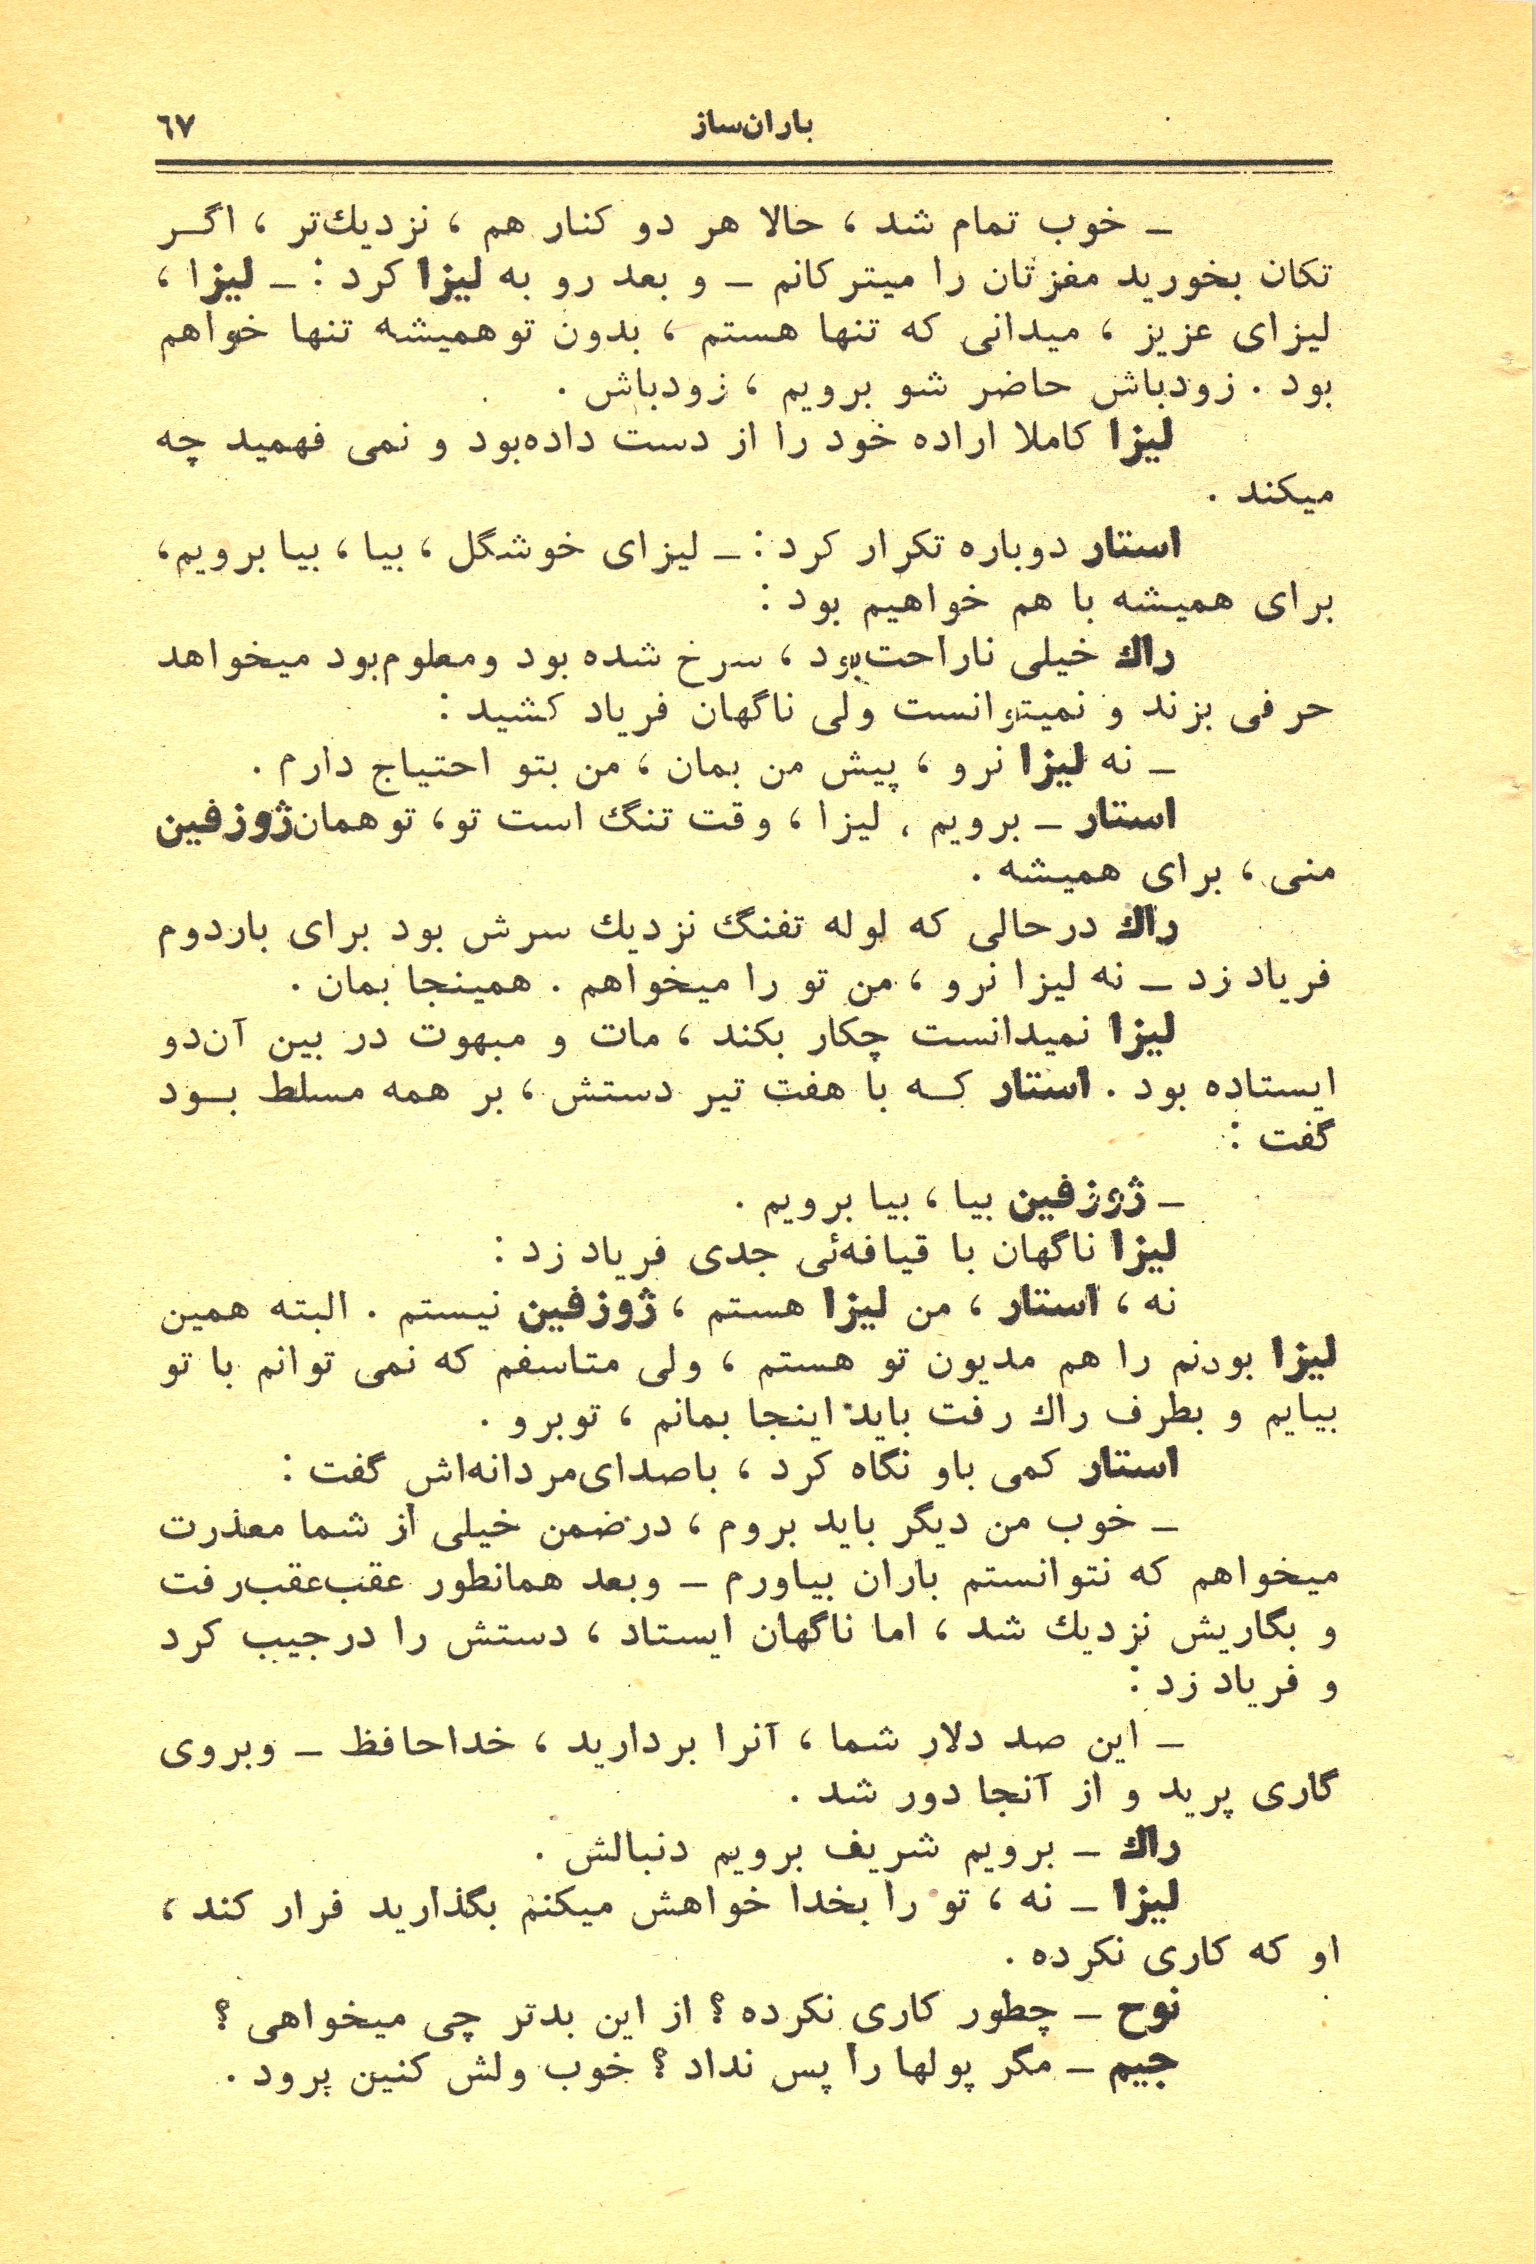 باران‌ساز ٦٧
ـ خوب تمام شد ، حالا هر دو کنار هم ، نزدیك‌تر ، اگـر
تکان بخورید مغزتان را میترکانم ـ و بعد رو به لیزا کرد : ـ لیزا ،
لیزای عزیز ، میدانی که تنها هستم ، بدون تو همیشه تنها خواهم
بود . زودباش حاضر شو برویم ، زودباش .
لیزا کاملا اراده خود را از دست داده‌بود و نمی فهمید چه
میکند .
استار دوباره تکرار کرد : ـ لیزای خوشگل ، بیا ، بیا برویم،
برای همیشه با هم خواهیم بود :
راك خیلی ناراحت‌بود ، سرخ شده بود و معلوم‌بود میخواهد
حرفی بزند و نمیتوانست ولی ناگهان فریاد کشید :
ـ نه لیزا نرو ، پیش من بمان ، من بتو احتیاج دارم .
استار ـ برویم ، لیزا ، وقت تنگ است تو، تو همان ژوزفین
منی ، برای همیشه .
راك درحالی که لوله تفنگ نزدیك سرش بود برای باردوم
فریاد زد ـ نه لیزا نرو ، من تو را میخواهم . همینجا بمان .
لیزا نمیدانست چکار بکند ، مات و مبهوت در بین آن‌دو
ایستاده بود . استار کـه با هفت تیر دستش ، بر همه مسلط بـود
گفت :
ـ ژوزفین بیا ، بیا برویم .
لیزا ناگهان با قیافه‌ئی جدی فریاد زد :
نه ، استار ، من لیزا هستم ، ژوزفین نیستم . البته همین
لیزا بودنم را هم مدیون تو هستم ، ولی متاسفم که نمی توانم با تو
بیایم و بطرف راك رفت باید اینجا بمانم ، توبرو .
استار کمی باو نگاه کرد ، باصدای‌مردانه‌اش گفت :
ـ خوب من دیگر باید بروم ، درضمن خیلی از شما معذرت
میخواهم که نتوانستم باران بیاورم ـ وبعد همانطور عقب‌عقب‌رفت
و بگاریش نزدیك شد ، اما ناگهان ایستاد ، دستش را درجیب کرد
و فریاد زد :
ـ این صد دلار شما ، آنرا بردارید ، خداحافظ ـ وبروی
گاری پرید و از آنجا دور شد .
راك ـ برویم شریف برویم دنبالش .
لیزا ـ نه ، تو را بخدا خواهش میکنم بگذارید فرار کند ،
او که کاری نکرده .
نوح ـ چطور کاری نکرده ؟ از این بدتر چی میخواهی ؟
جیم ـ مگر پولها را پس نداد ؟ خوب ولش کنین برود .